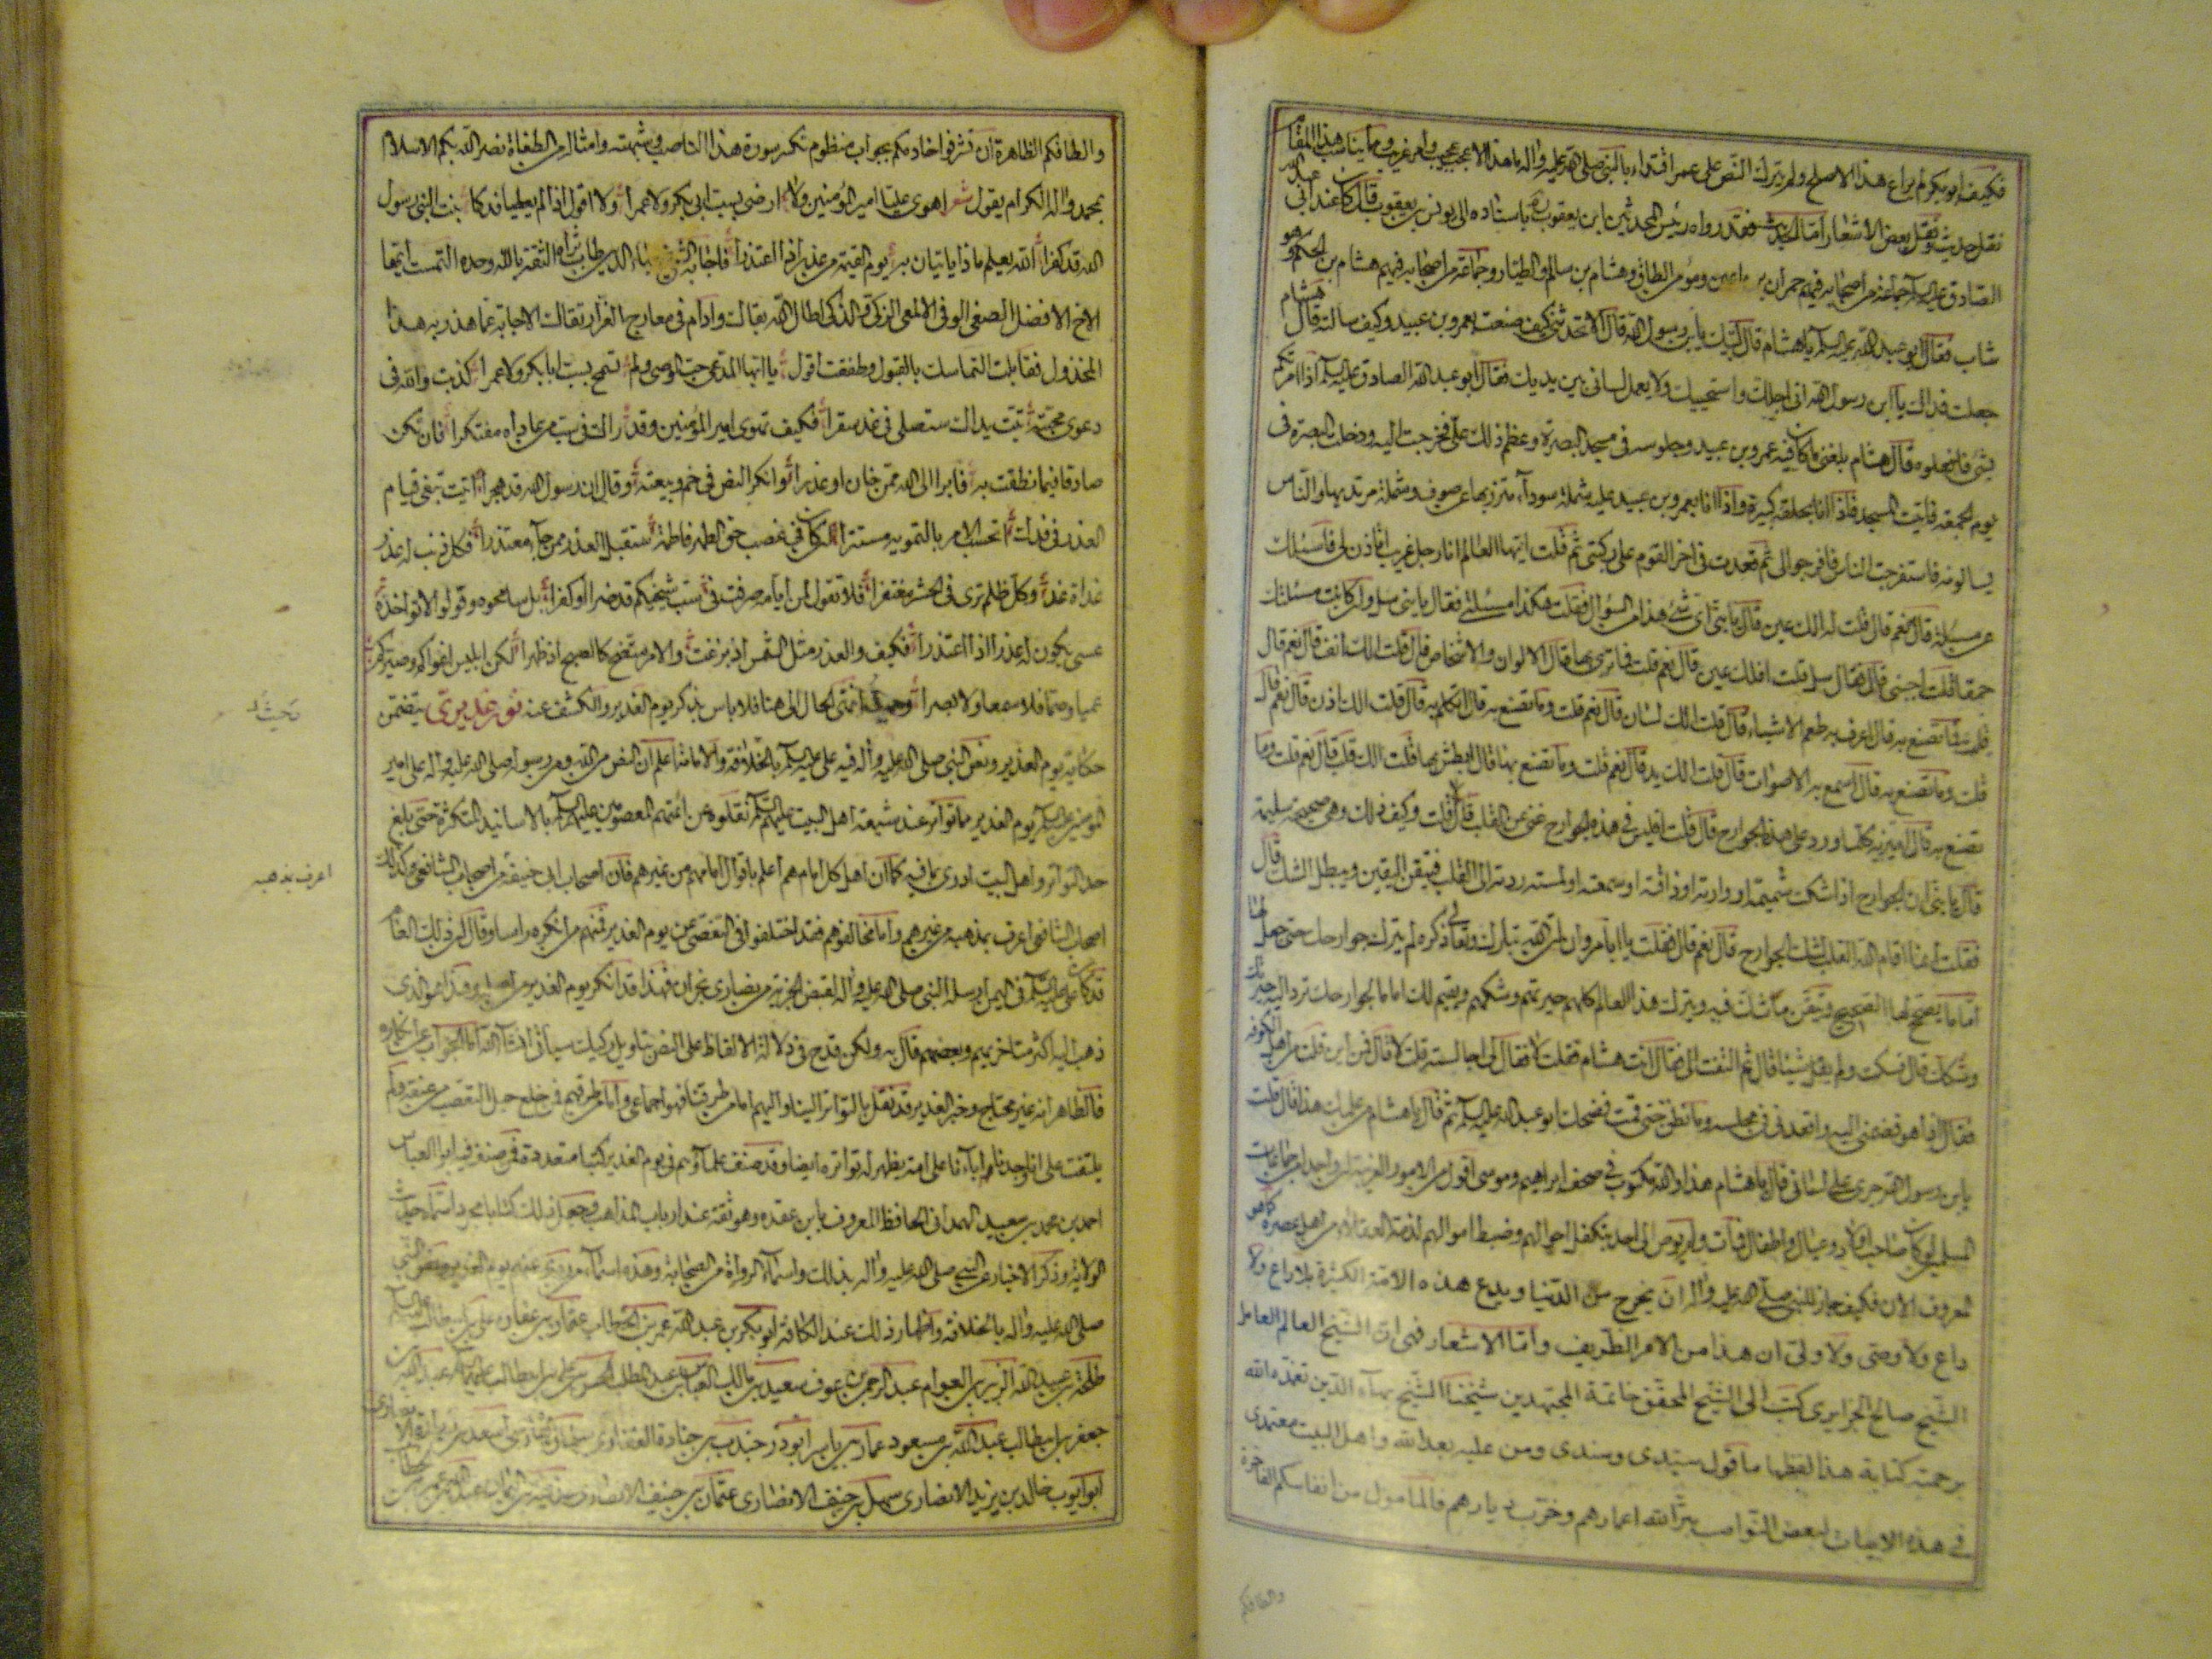 فكيف ابو بكر لم يراع هذا الاصلح ولم يترك النص على عمر اقتداء بالنبي صلى الله عليه واله ما هذا الا عجب عجيب وامر غريب ومما يناسب هذا المقام
نقل حديث ونقل بعض الاشعار اما الحديث فقد رواه رئيس المحدثين ابن يعقوب باسناده الى يونس بن يعقوب قال كان عند ابي عبد الله
الصادق عليه السلام جماعة من اصحابه فيهم حمران بن اعين ومؤمن الطاق وهشام بن سالم والطيار وجماعة من اصحابه فيهم هشام بن الحكم وهو
شاب فقال ابو عبد الله عليه السلام يا هشام قال لبيك يا بن رسول الله قال الا تحدثني كيف صنعت بعمرو بن عبيد وكيف سالته قال هشام
جعلت فداك يا ابن رسول الله اني اجلك واستحييك ولا يعمل لساني بين يديك فقال ابو عبد الله الصادق عليه السلام اذا امرتكم
بشئ فافعلوه قال هشام بلغني ما كان فيه عمرو بن عبيد وجلوسه في مسجد البصرة وعظم ذلك علي فخرجت اليه ودخلت البصرة في
يوم الجمعة فاتيت المسجد فاذا انا بحلقة كبيرة واذا انا بعمرو بن عبيد عليه شملة سوداء متزر بها من صوف وشملة مرتد بها والناس
يسالونه فاستفرجت الناس فافرجوا لي ثم قعدت في اخر القوم على ركبتي ثم قلت ايها العالم انا رجل غريب اتاذن لي فاسئلك
عن مسئلة قال نعم قال قلت له الك عين قال يا بني اي شئ هذا من السؤال فقلت هكذا مسئلتي فقال يا بني سل وان كانت مسئلتك
حمقا قلت اجبني قال فقال سل قلت افلك عين قال نعم قلت فما ترى بها قال الالوان والاشخاص قال قلت الك انف قال نعم قال
قلت فما تصنع به قال اعرف به طعم الاشياء قال قلت الك لسان قال نعم قلت وما تصنع به قال اتكلم به قال قلت الك اذن قال نعم قال
قلت وما تصنع به قال اسمع به الاصوات قال قلت الك يد قال نعم قلت وما تصنع بها قال ابطش بها قلت الك قلب قال نعم قلت وما
تصنع به قال اميز به كلما ورد على هذه الجوارح قال قلت افليس في هذه الجوارح غنى عن القلب قال لا قلت وكيف ذلك وهي صحيحة سليمة
قال يا بني ان الجوارح اذا شكت شيئا شمته او راته او ذاقته او سمعته او لمسته ردته الى القلب فتيقن اليقين ويبطل الشك قال
فقلت انما اقام الله القلب لشك الجوارح قال نعم قال فقلت يا ابا مروان ان الله تبارك وتعالى ذكره لم يترك جوارحك حتى جعل لها
اماما يصحح لها الصحيح وتيقن ما شك فيه ويترك هذا العالم كلهم حيرتهم وشكهم ويقيم لك اماما لجوارحك ترد اليه حيرتك
وشكك قال فسكت ولم يقل شيئا قال ثم التفت الي فقال انت هشام فقلت لا فقال لي اجالسته قلت لا قال فمن اين قلت من اهل الكوفة
فقال اذا هو فضمني اليه واقعدني في مجلسه وما نطق حتى قمت فضحك ابو عبد الله عليه السلام ثم قال يا هشام من علمك هذا قال قلت
يا بن رسول الله جرى على لساني قال يا هشام هذا والله مكتوب في صحف ابراهيم وموسى اقول من الامور الغريبة
المعروف الان فكيف جاز للنبي صلى الله عليه واله ان يخرج من الدنيا ويدع هذه الامة الكثيرة بلا راع ولا
داع ولا وصي ولا ولي ان هذا من الامر الطريف واما الاشعار فهي ان الشيخ العالم العامل
الشيخ صالح الجزايري كتب الى الشيخ المحقق خاتمة المجتهدين شيخنا الشيخ بهاء الدين تغمده الله
برحمته كتابة هذا لفظها ما قول سيدي وسندي ومن عليه بعد الله واهل البيت معتمدي
في هذه الابيات لبعض النواصب بتر الله اعمارهم وخرب ديارهم فالمامول من انفاسكم الفاخرة
والطافكم
والطافكم الظاهرة ان تشرفوا خادمكم بجواب منظوم تكسر سورة هذا الناصب في شبهته وامثاله من الطغاة نصر الله بكم الاسلام
بمحمد واله الكرام يقول شعر اهوى عليا امير المؤمنين ولا ارضى بسب ابي بكر ولا عمرا ولا اقول اذا لم يعطيا فدكا بنت النبي رسول
الله قد كفرا الله يعلم ماذا ياتيان به يوم القيمة من عذر اذا اعتذرا فاجابه الشيخ بهاء الدين طاب ثراه الثقة بالله وحده التمست ايها
الاخ الافضل الصفي الوفي الالمعي الزكي الذكي اطال الله بقاك وادام في معارج العز ارتقاك الاجابة عما هذر به هذا
المخذول فقابلت التماسك بالقبول وطفقت اقول يا ايها المدعي حب الوصي ولم تسمح بسب ابا بكر ولا عمرا كذبت والله في
دعوى محبته تبت يداك ستصلى في غد سقرا فكيف تهوى امير المؤمنين وقد اراك في سب من عاداه مفتكرا فان تكن
صادقا فيما نطقت به فابرا الى الله ممن خان او غدرا وانكر النص في خم وبيعته وقال ان رسول الله قد هجرا اتيت تبغي قيام
العذر في فدك اتحسب الامر بالتمويه مستترا ان كان في غصب حق الطهر فاطمة ستقبل العذر ممن جاء معتذرا فكل ذنب له عذر
غداة غد وكل ظلم ترى في الحشر مغتفرا فلا تقول لمن ايامه صرفت في سب شيخيكم قد ضل او كفرا بل سامحوه وقولوا لا نؤاخذه
عسى يكون له عذر اذا اعتذرا فكيف والعذر مثل الشمس اذ بزغت والامر متضح كالصبح اذ ظهرا لكن ابليس اغواكم وصيركم
عميا وصما فلا سمعا ولا بصرا وحيث انتهى الحال الى هنا فلا باس بذكر يوم الغدير والكشف عنه نور غديري يتضمن
حكاية يوم الغدير ونص النبي صلى الله عليه واله فيه على علي عليه السلام بالخلافة والامامة اعلم ان النص من الله ومن رسوله صلى الله عليه واله على امير
المؤمنين عليه السلام يوم الغدير مما تواتر عند شيعة اهل البيت عليهم السلام نقلوه عن ائمتهم المعصومين عليهم السلام بالاسانيد المتكثرة حتى بلغ
حد التواتر واهل البيت ادرى بما فيه كما ان اهل كل امام هم اعلم باقوال امامهم من غيرهم فان اصحاب ابي حنيفة من اصحاب الشافعي وكذلك
اصحاب الشافعي اعرف بمذهبه من غيرهم واما مخالفوهم فقد اختلفوا في التفصي عن يوم الغدير فمنهم من انكره راسا وقال ان في ذلك العام
قد كان علي عليه السلام في اليمن ارسله النبي صلى الله عليه واله لقبض الجزية من نصارى نجران فهذا قد انكر يوم الغدير من اصله وهذا هو الذي
ذهب اليه اكثر متاخريهم وبعضهم قال به ولكن قدح في دلالة الالفاظ على النص بتاويل ركيك سياتي انشاء الله اما الجواب عن انكاره
فالظاهر انه غير محتاج وخبر الغدير قد نقل بالتواتر الينا واليهم اما من طرقنا فهو اجماعي واما من طرقهم فمن خلع حبل التعصب من عنقه ولم
يلتفت على انا وجدنا اباءنا على امة يظهر له تواتره ايضا وقد صنف علماؤهم في يوم الغدير كتبا متعددة فمن صنف فيه ابو العباس
احمد بن محمد بن سعيد الهمداني الحافظ المعروف بابن عقده وهو ثقة عند ارباب المذاهب وجعل ذلك كتابا مجردا سماه حديث
الولاية وذكر الاخبار عن النبي صلى الله عليه واله بذلك واسماء الرواة من الصحابة وهذه اسماء من روى عنهم يوم الغدير ونص النبي
صلى الله عليه واله بالخلافة واظهار ذلك عند الكافة ابو بكر بن عبد الله عمر بن الخطاب عثمان بن عفان علي بن ابي طالب عليه السلام
طلحة بن عبيد الله الزبير بن العوام عبد الرحمن بن عوف سعيد بن مالك العباس بن عبد المطلب الحسن بن علي بن ابي طالب عليهما السلام عبد الله بن
جعفر بن ابي طالب عبد الله بن مسعود عمار بن ياسر ابوذر جندب بن جنادة الغفاري سلمان الفارسي اسعد بن زرارة الانصاري
ابو ايوب خالد بن يزيد الانصاري سهل بن حنيف الانصاري عثمان بن حنيف الانصاري
اعرف بمذهبه